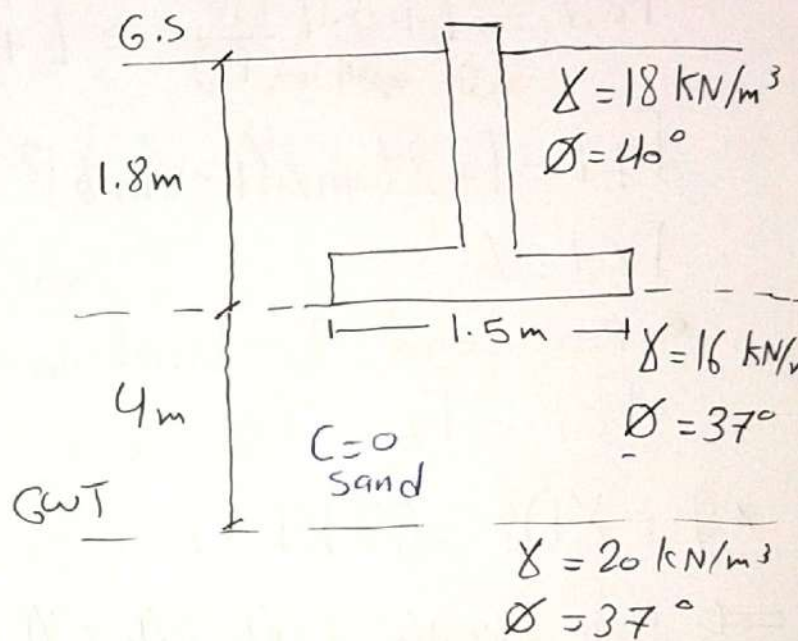 G.S
γ = 18 KN/m³
Ø = 40°
1.8m
1.5m
γ = 16 KN/
Ø = 37°
4m
C=0
Sand
GWT
γ = 20 KN/m³
Ø = 37°